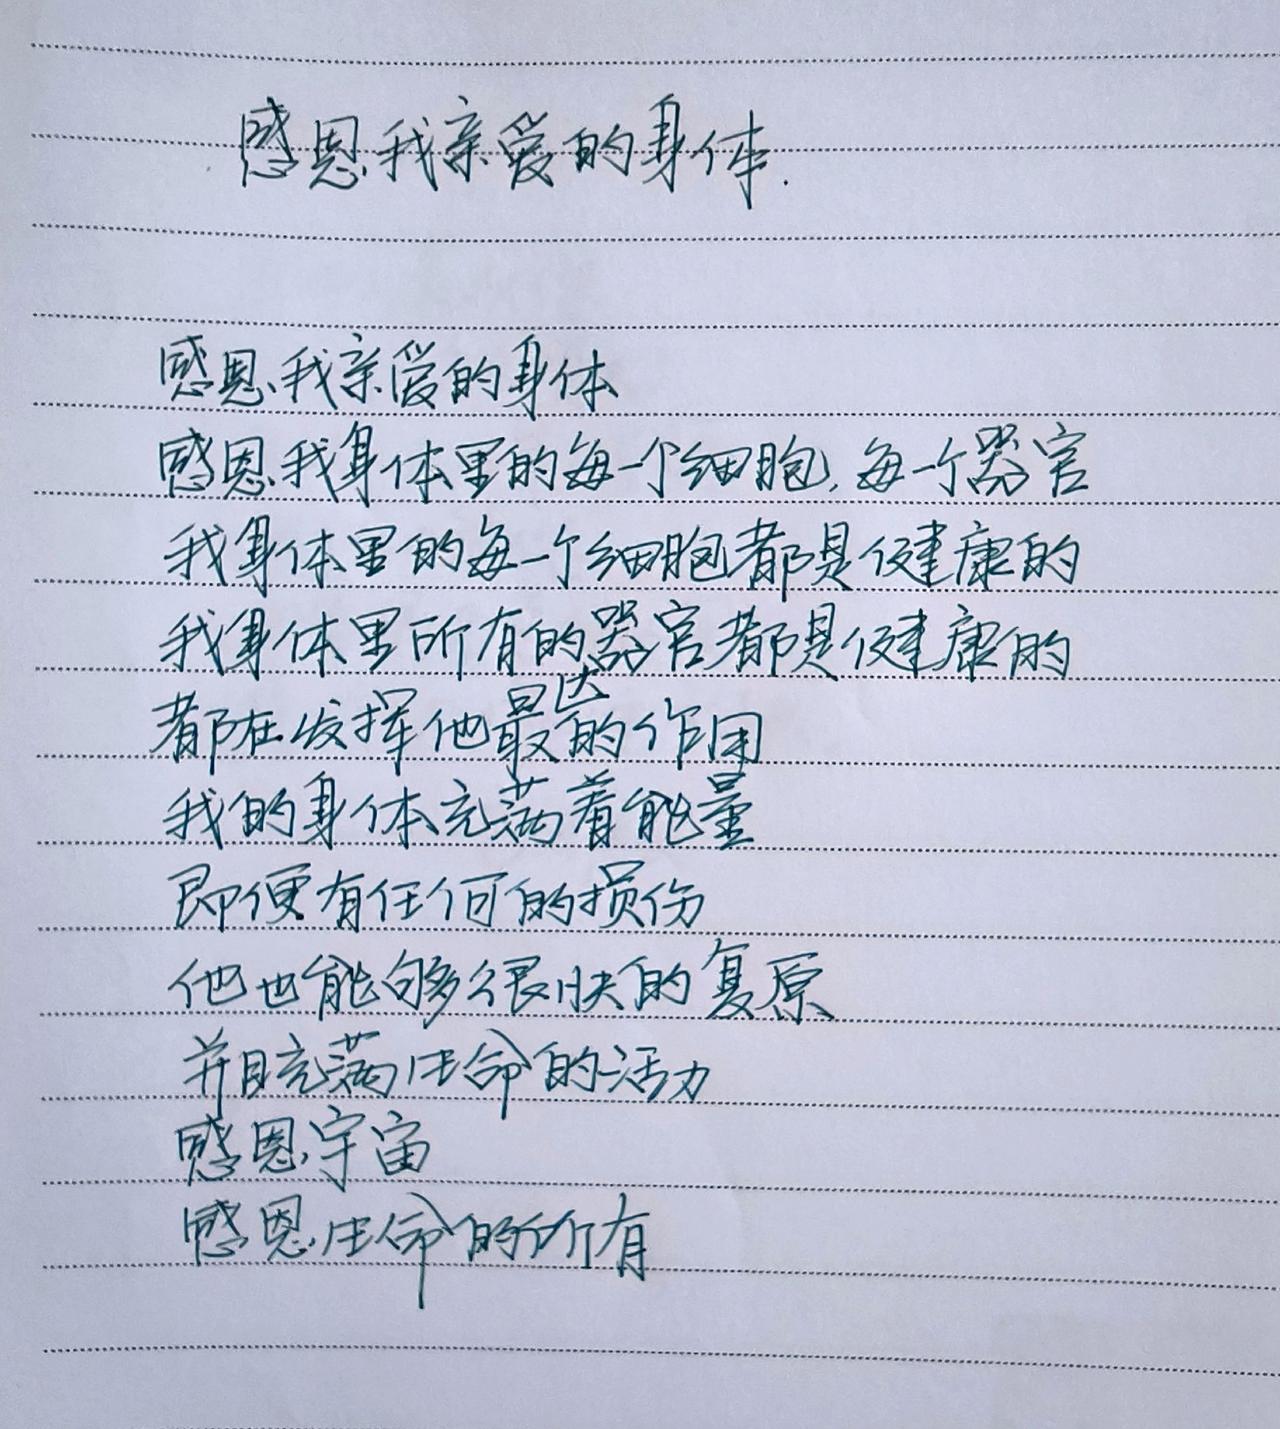 感恩我亲爱的身体.
感恩我亲爱的身体
感恩我身体里的每一个细胞,每一个器官
我身体里的每一个细胞都是健康的
我身体里所有的器官都是健康的
都在发挥他最大的作用
我的身体充满着能量
即便有任何的损伤
他也能够很快的复原
并且充满生命的活力
感恩宇宙
感恩生命的所有